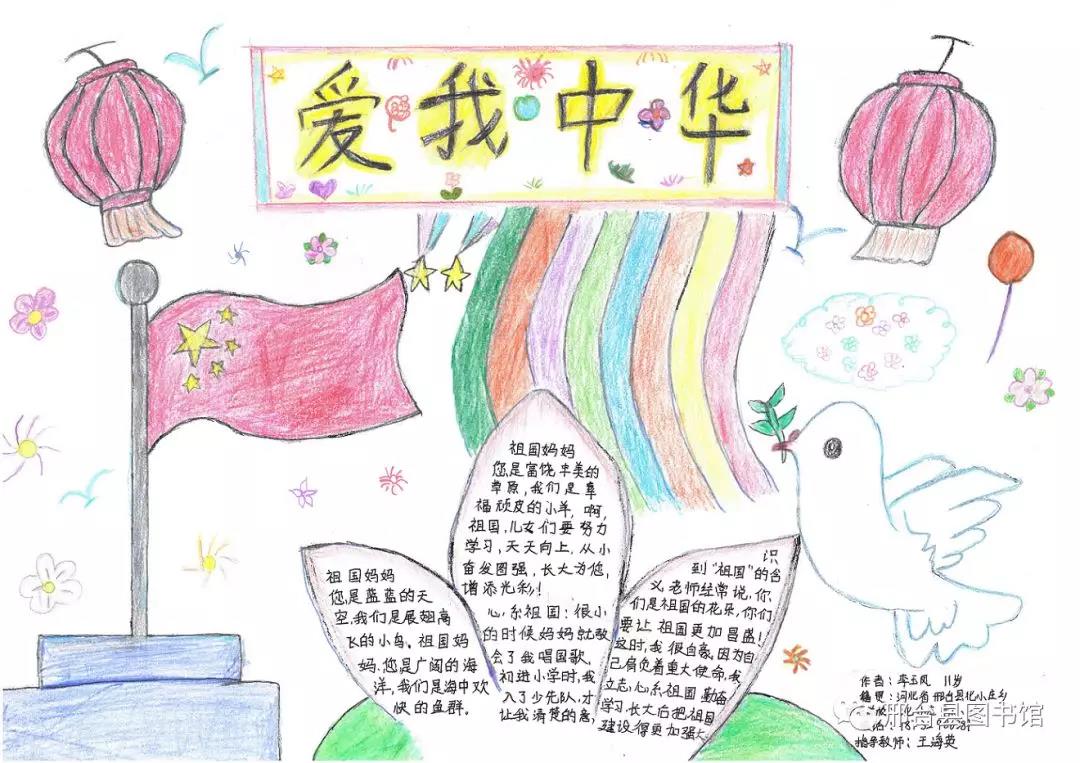 爱我中华
祖国妈妈
您是蓝蓝的天
空，我们是展翅高
飞的小鸟。祖国妈
妈，您是广阔的海
洋，我们是海中欢
快的鱼群。
祖国妈妈
您是富饶丰美的
草原，我们是幸
福顽皮的小羊，啊，
祖国，儿女们要努力
学习，天天向上，从小
奋发图强，长大为您，
增添光彩！
心系祖国：很小
的时候妈妈就教
会了我唱国歌。
初进小学时，我
入了少先队，才
让我清楚的意
识
到“祖国”的含
义，老师经常说，你
们是祖国的花朵，你们
要让祖国更加昌盛！
这时，我很自豪，因为自
己肩负着重大使命，我
立志，心系祖国，勤奋
学习，长大后把祖国
建设得更加强大
作者：李玉凤 11岁
河北省邢台县
邢台县图书馆
指导教师：王海英